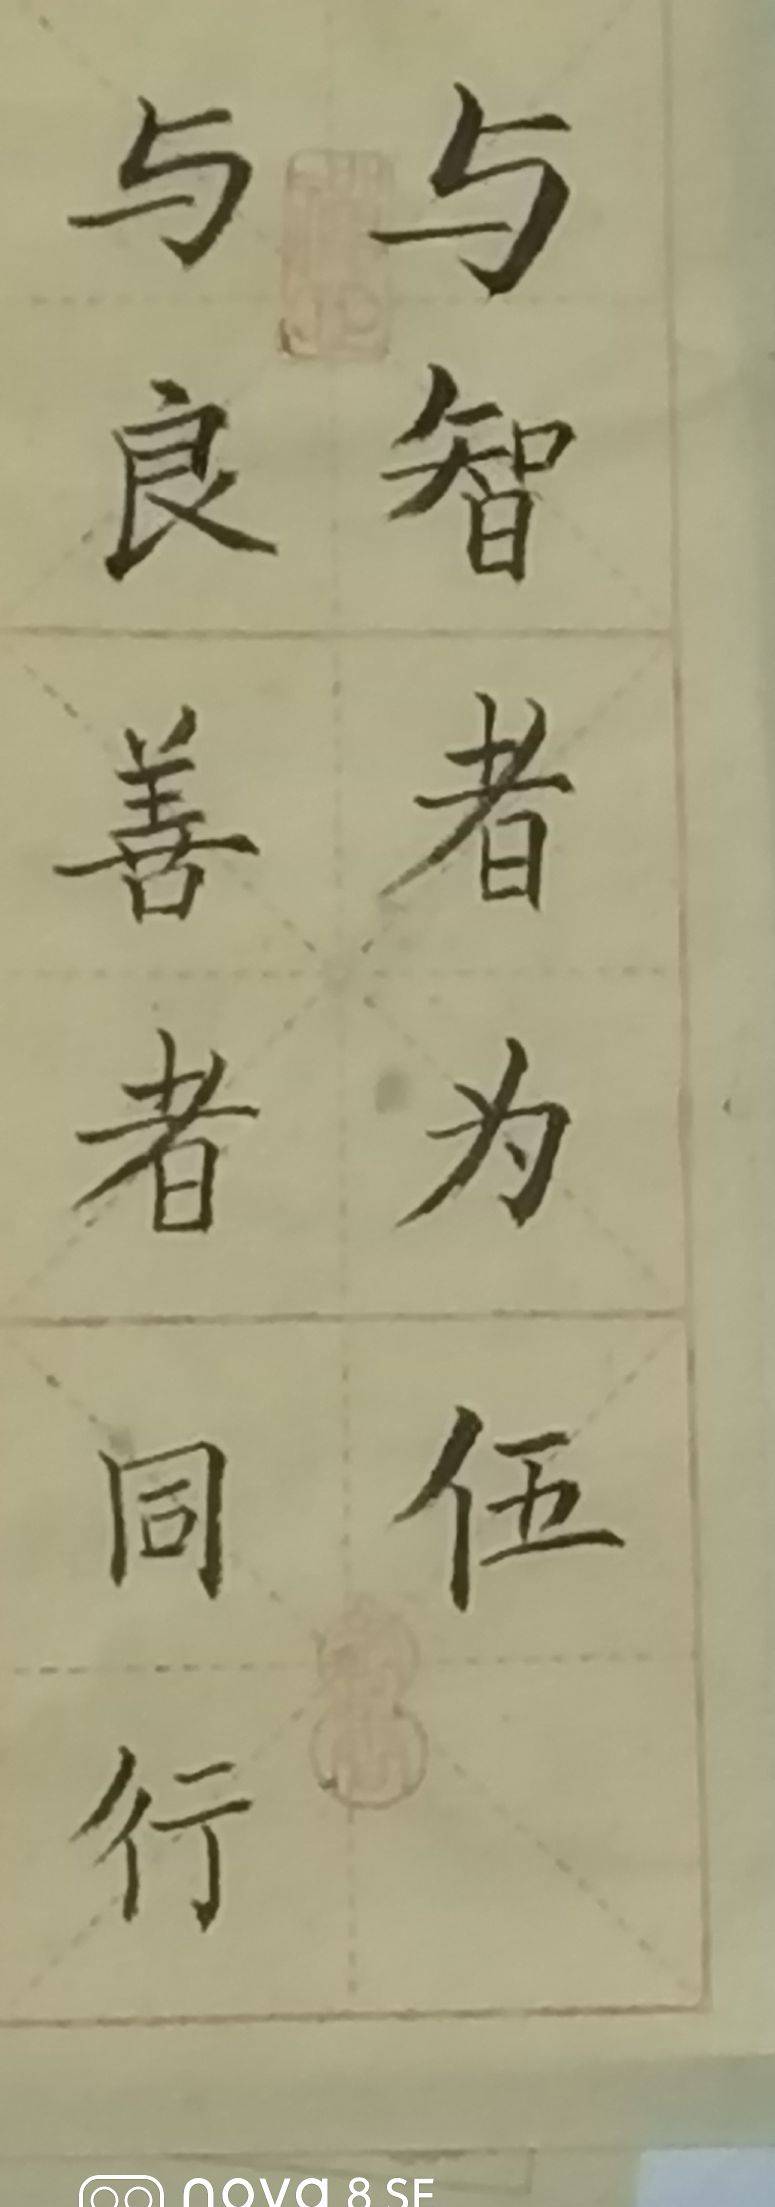 与智者为伍
与良善者同行
nova 8 SE